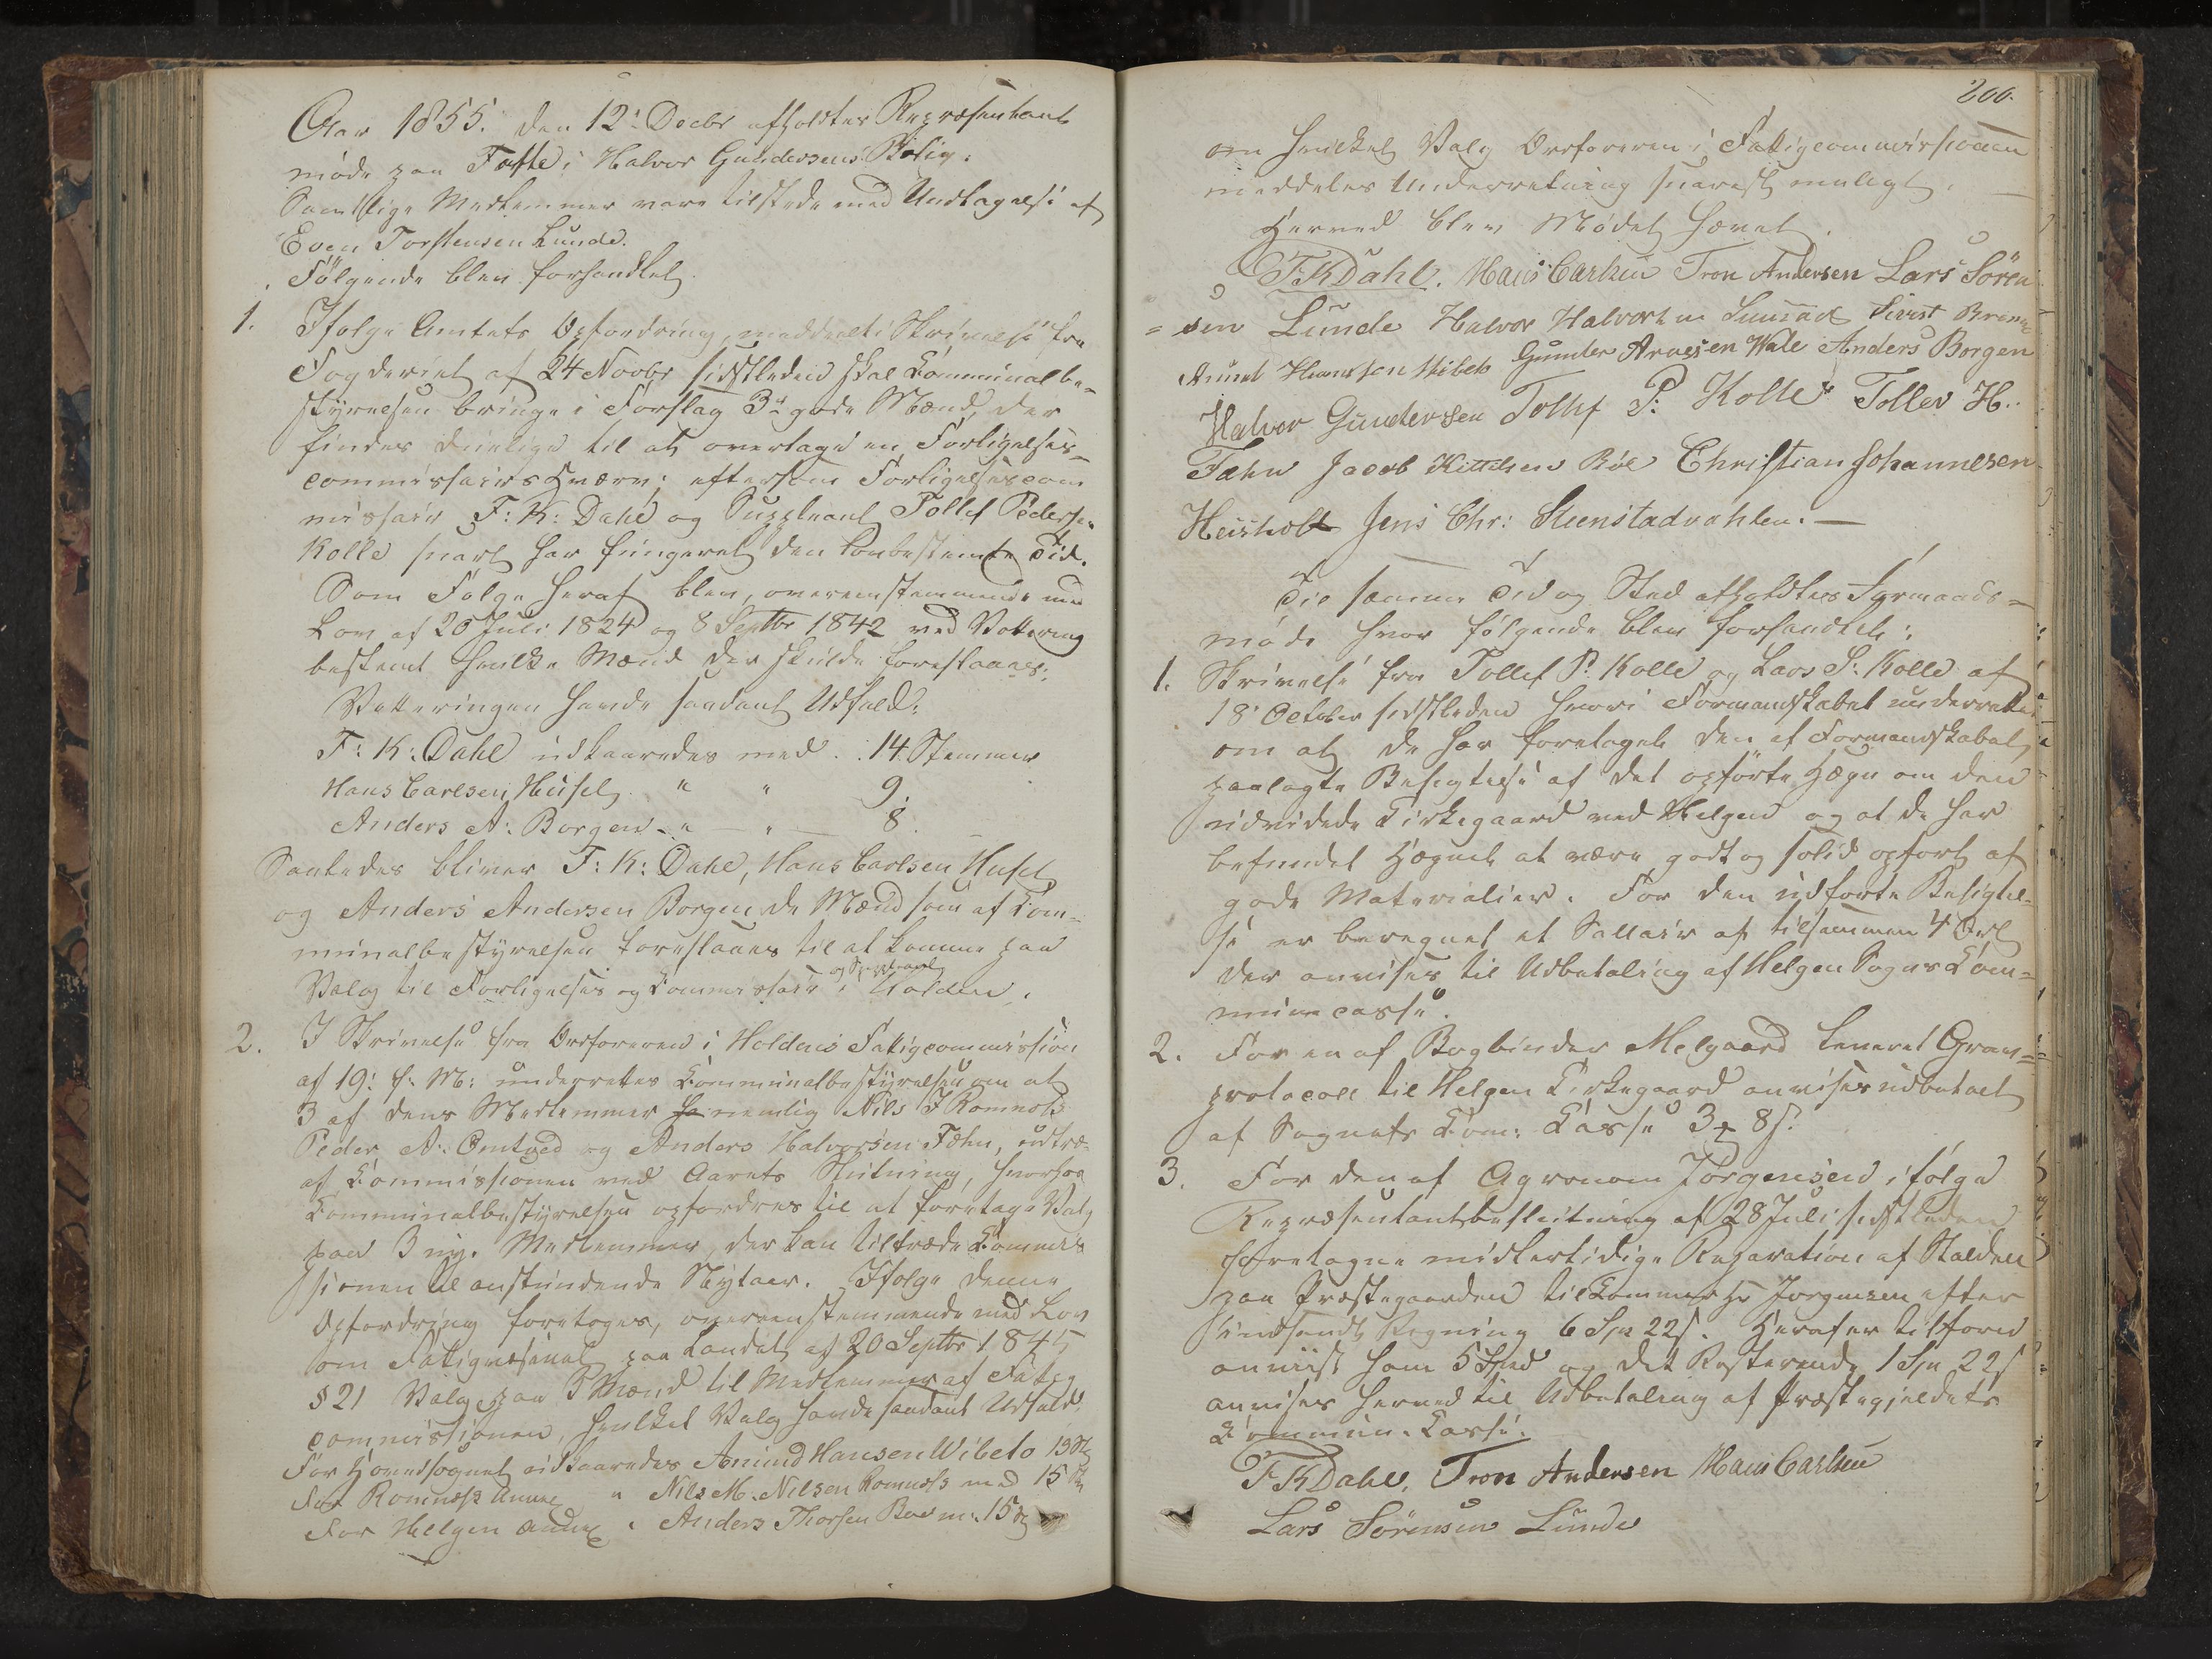 Aar 1855. den 12te Decbr afholdtes Repræsentant
møde paa Tofte i Halvor Gundersens Bolig.
Samtlige Medlemmer vare tilstede med Undtagelse af
Even Torstensen Lunde.
Følgende blev forhandlet.
1. Ifølge Amtets Opfordring, meddeelt i Skrivelse fra
Fogderiet af 24 Novbr sidstleden skal Communalbe-
styrelsen bringe i Forslag 3de gode Mænd, der
findes duelige til at overtage en Forligelses-
commissairs Hværv; eftersom Forligelsescom
missair F: K: Dahl og Suppleant Tollef Pedersen
Kolle snart har fungeret den lovbestemte Tid.
Som Følge heraf blev, overensstemmende med
Lov af 20 Juli 1824 og 8 Septbr 1842 ved Vottering
bestemt hvilke Mænd der skulde foreslaaes.
Votteringen havde saadant Udfald:
F: K: Dahl udkaaredes med . . 14 Stemmer
Hans Carlsen Husel " " 9.
Anders A: Borgen - " - " - 8.
Saaledes bliver F: K: Dahl, Hans Carlsen Husel
og Anders Andersen Borgen de Mænd som af Com-
munalbestyrelsen foreslaaes til at komme paa
og Suppleant
Valg til Forligelses og Commissair i Holden.
2. I Skrivelse fra Ordføreren i Holdens Fattigcommission
af 19: f. M: underrettes Communalbestyrelsen om at
3 af dens Medlemmer nemlig Nils J Romnæs
Peder A: Omtved og Anders Halvorsen Fæhn, udtræ-
af Commissionen ved Aarets Slutning, hvorfor
Communalbestyrelsen opfordres til at foretage Valg
paa 3 nye Medlemmer, der kan tiltræde Commis
sionen til anstundende Nytaar. Ifølge denne
Opfordring foretoges, overensstemmende med Lov
om Fattigvæsenet paa Landet af 20 Septbr 1845
§ 21 Valg paa 3 Mænd til Medlemmer af Fattig
commissionen, hvilket Valg havde saadant Udfald:
For Hovedsognet udkaaredes Amund Hansen Wibeto 13 St
For Romnæs Annex " Nils M. Nilsen Romnæs med 15 St
For Helgen Annex " Anders Thorsen Boe m. 15 St
200.
om hvilket Valg Ordføreren i Fattigcommissionen
meddeles Underretning snarest muligt.
Herved blev Mødet hævet.
F K Dahl. Hans Carlsen Tron Andersen Lars Sören
= sen Lunde Halvor Halvorsen Sivert
Amund Hansen Wibeto Gunder Arnesen Wale Anders Borgen
Halvor Gundersen Tollef P: Kolle Tollev H.
Fæhn Jacob Kittilsen Böe Christian Johannesen
Heisholt Jens Chr: Steenstadvahlen. —
Til samme Tid og Sted afholdtes Formands-
møde hvor følgende blev forhandlet:
1. Skrivelse fra Tollef P. Kolle og Lars S: Kolle af
18 October sidstleden hvori Formandskabet underrettes
om at de har foretaget den af Formandskabet
paalagte Besigtelse af det opførte Hægn om den
udvidede Kirkegaard ved Helgen og at de har
befundet Hægnet at være godt og solid opført af
gode Materialier. For den udførte Besigtel-
se er beregnet et Sallair af tilsammen 4 Ort
der anvises til Udbetaling af Helgen Sogns Com-
mune casse.
2. For en af Bogbinder Melgaard leveret Grav-
protocol til Helgen Kirkegaard anvises udbetalt
af Sognets Com: Casse 3 8 s.
3. For den af Agronom Jörgensen ifølge
Repræsentantbeslutning af 28 Juli sidstleden
foretagne midlertidige Reparation af Stalden
paa Præstegaarden tilkommer Hr Jörgensen efter
indsendt Regning 6 Spd 22 s. Heraf er tilforn
anviist ham 5 Spd og det Resterende 1 Spd 22 s
anvises herved til Udbetaling af Præstegjeldets
Commun-Casse.
F K Dahl. Tron Andersen Hans Carlsen
Lars Sörensen Lunde